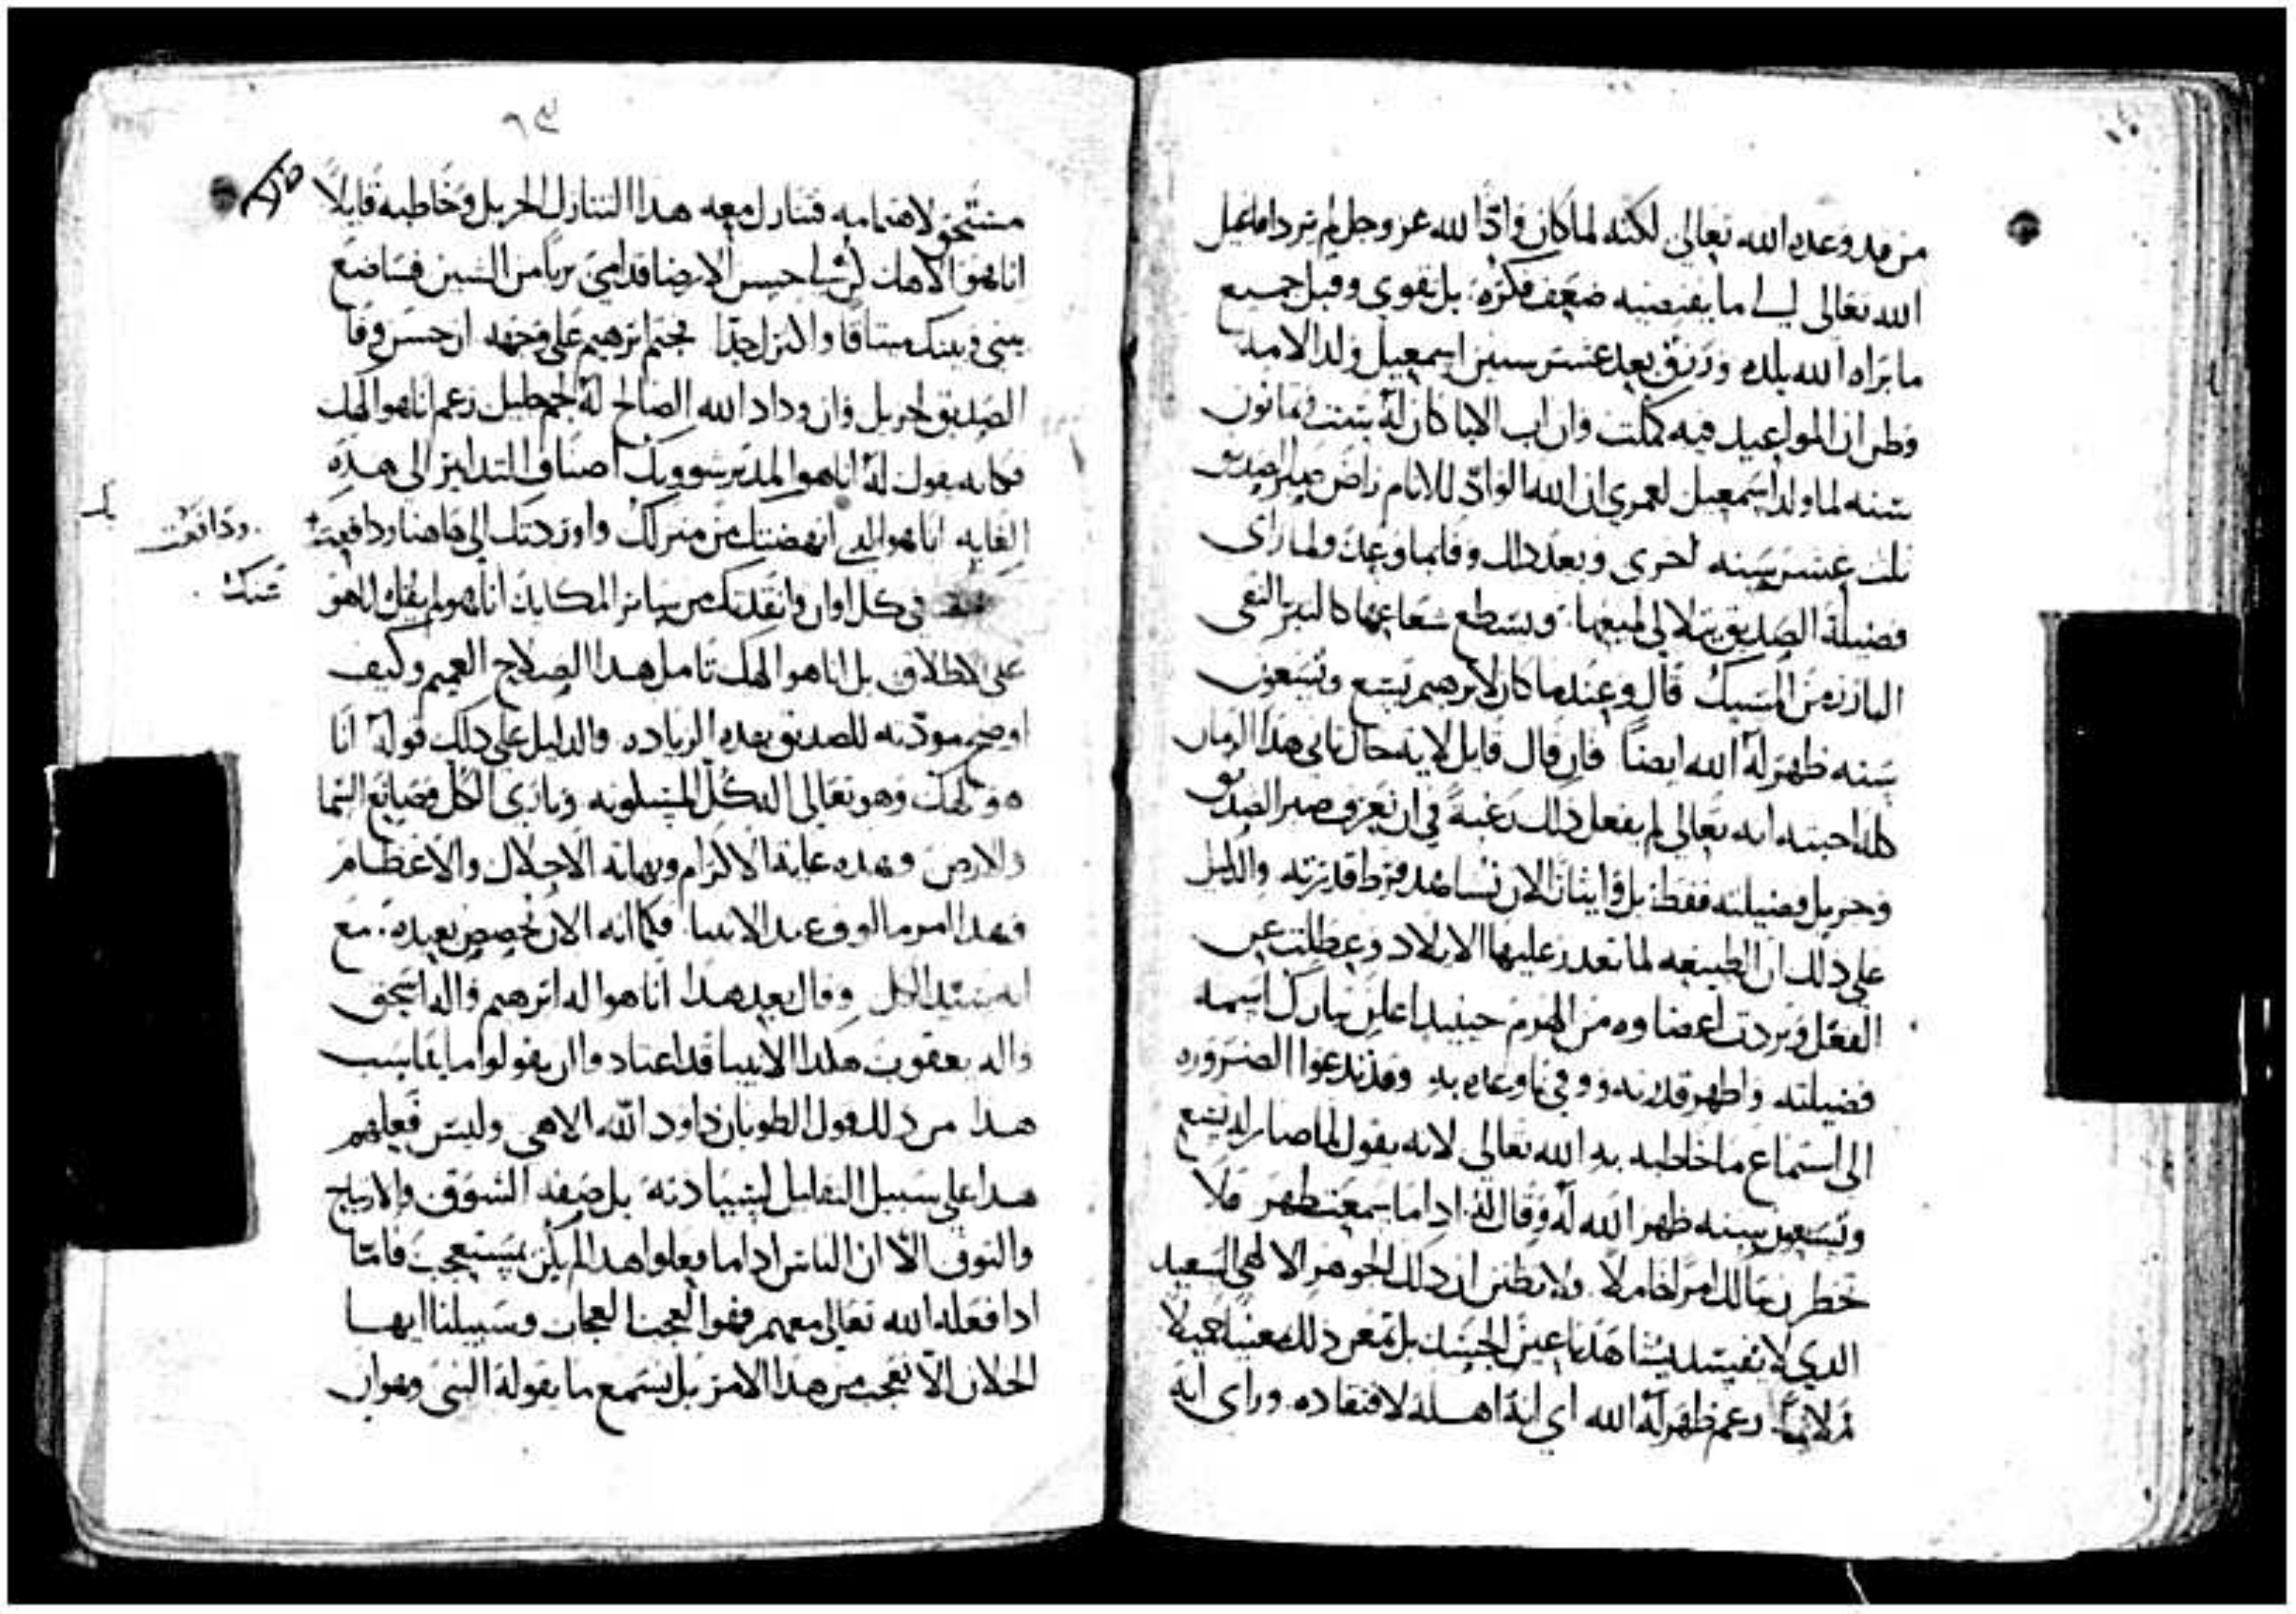 من قد وعده الله تعالى لكنه لما كان وادّا لله عز وجل لم تزداماعيل
الله تعالى ما يقتضيه ضعف فكره بل تقوى وقبل جميع
ما يراه الله بلده ورزق بعد عشر سنين اسمعيل ولد الامه
وظن ان المواعيد فيه كملت وان اب الابا كان له ست وثمانون
سنه لما ولد اسمعيل لعمري ان الله الوادّ للانام راض صبر الصديق
ثلث عشر سنه اخرى وبعد ذلك وفا بما وعد ولما راى
فضيلة الصديق تتلالى لميعها وتسطع شعاعها كالتبر النقي
البارز من السبك قال وعندما كان لابرهيم تسع وتسعون
سنه ظهر له الله ايضاً فان قال قايل لايه حال تانى هذا الزمان
كله احبته انه تعالى لم يفعل ذلك رغبةً في ان نعرف صبر الصديق
وجزيل فضيلته فقط بل وايثاراً لان نشاهد فرط قدرته والدليل
على ذلك ان الطبيعه لما تعذر عليها الايلاد وعطلت عن
الفعل وبردت اعضاوه من الهرم حينيدٍ اعلن تبارك اسمه
فضيلته واظهر قدرته ووفى ما وعده به وقد تدعوا الضروره
الى استماع ما خاطبه به الله تعالى لانه يقول لما صار له تسع
وتسعين سنه ظهر الله له وقال له اذا ما سمعت ظهر فلا
تخطرن ببالك امراً خاملاً ولا تظنن ان ذلك الجوهر الالهي السعيد
الذي لا تفسد يشاهد باعين الجسد بل تمعن ذلك معنياً جميلاً
ملايماً زعم ظهر له الله اي انه اهله لافتقاده وراى انه
٦٩
مستحق لاهتمامه فتنازل معه هذا التنازل الجزيل وخاطبه قايلاً
انا هو الاهك كن شيا حسن الارضا قدامي برياً من الشين فساضع
بيني وبينك ميثاقاً واكثرك جداً فجثم ابرهيم على وجهه ان حسن وفا
الصديق لجزيل وان وداد الله الصالح له لجم جليل زعم انا هو الهك
فكانه يقول له انا هو المدبر شوونك اصناف التدابير الى هذه
الغايه انا هو الذي انهضتك من منزلك واوردتك الى هاهنا ودافعت
في كل اوان وانقذتك من ساير المكايد انا هو لم يقل انا هو
ودافعت
عنك
على الاطلاق بل انا هو الهك تامل هذا الصلاح العميم وكيف
اوضح مودته للصديق بهذه الزياده والدليل على ذلك قوله انا
هو الهك وهو تعالى اله كل المسكونه وباري الكل وصانع السما
والارض وهذه غاية الاكرام ونهاية الاجلال والاعظام
فهذا امر مالوف عند الانبيا فكما انه الان تخصص بعبده مع
انه سيد الكل وقال بعد هذا انا هو اله ابرهيم واله اسحق
واله يعقوب هكذا الانبيا قد اعتادوا ان يقولوا ما يناسب
هذا من ذلك قول الطوبان داود الله الاهي وليس فعلهم
هذا على سبيل التقليل لسيادته بل صفه الشوق والارتياح
والتوق الا ان الناس اذا ما فعلوا هذا لم يكن يستعجب فاما
اذا فعله الله تعالى معهم فهو العجب العجاب وسبيلنا ايها
الخلان الا نعجب من هذا الامر بل نستمع ما يقوله النبي وهو ان